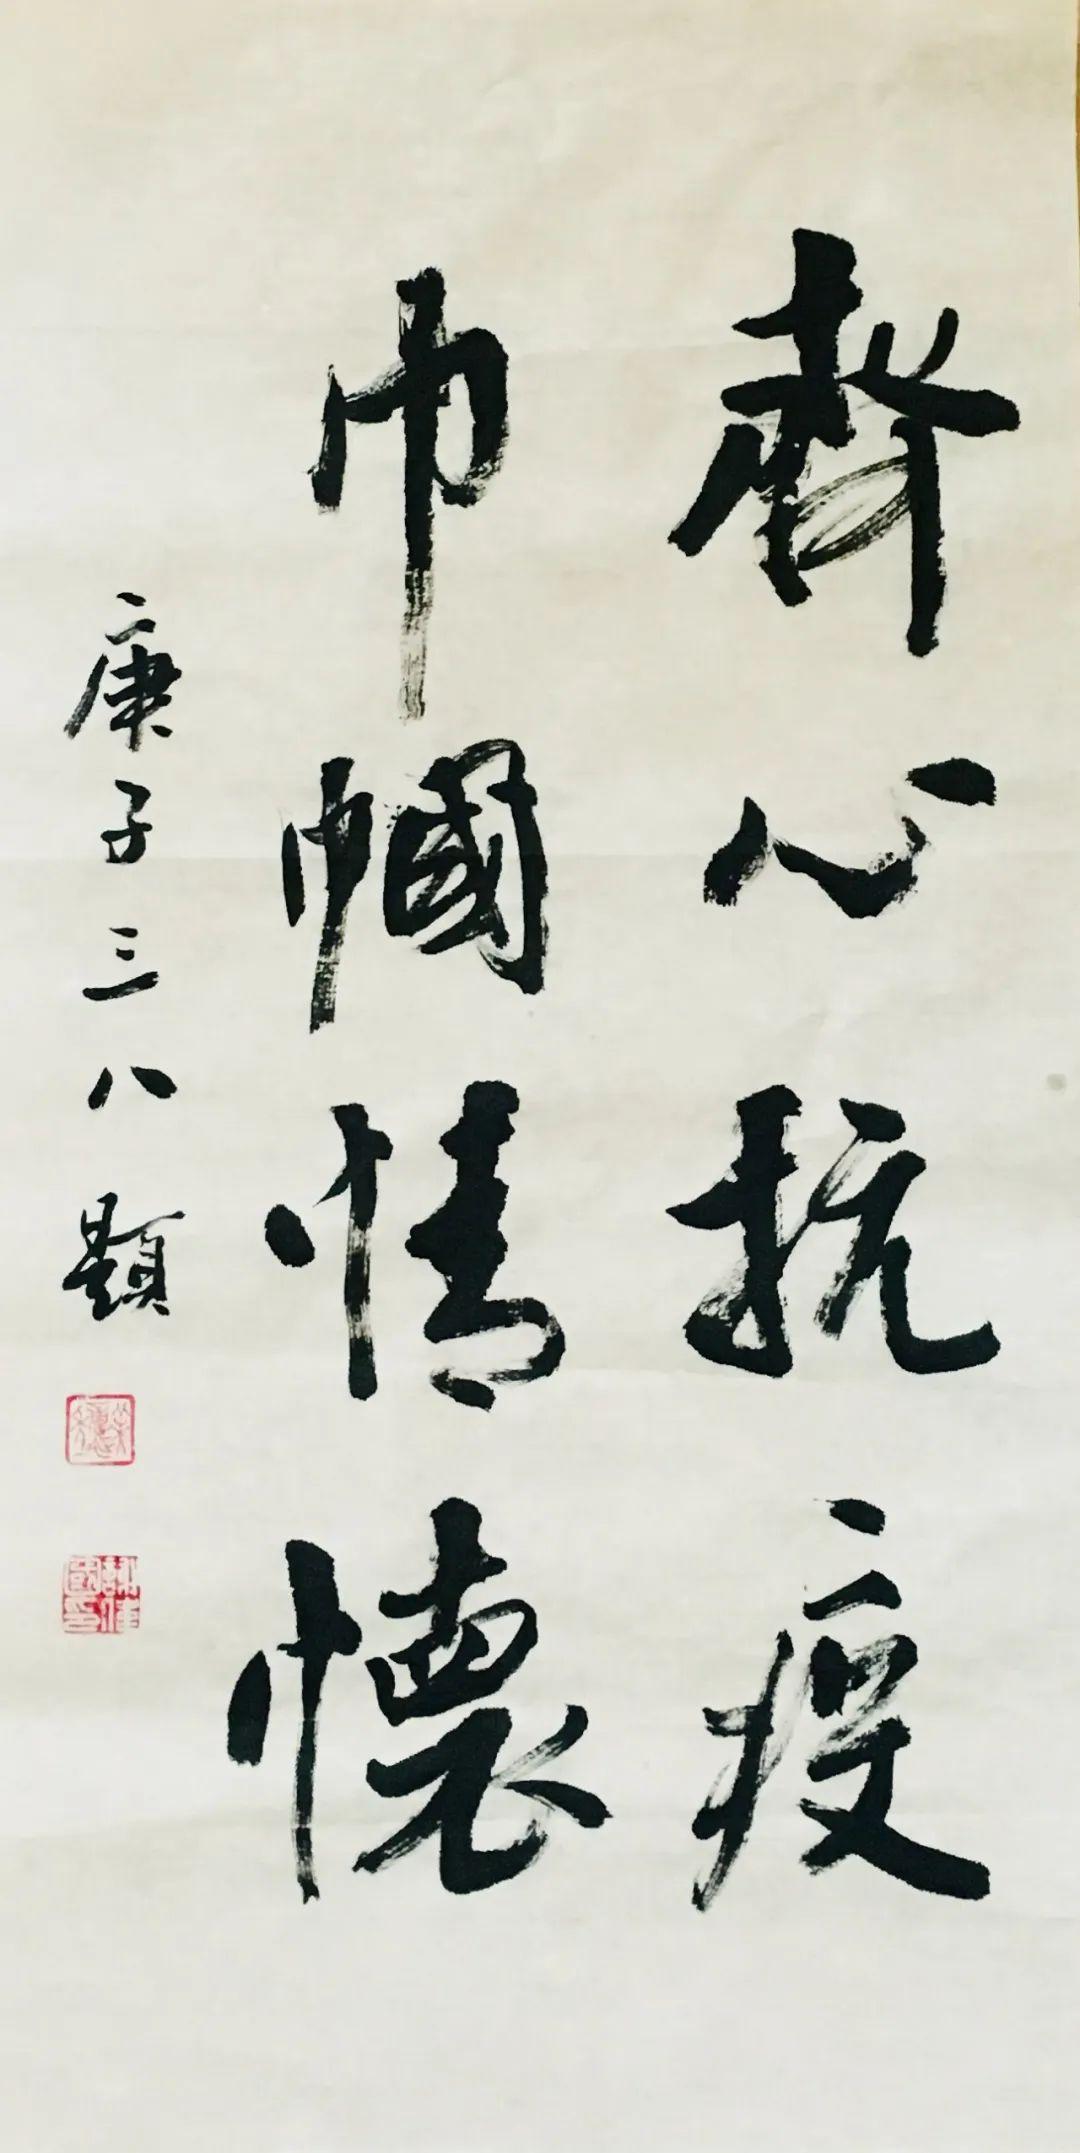 齊心抗疫
巾幗情懷
庚子三八 題